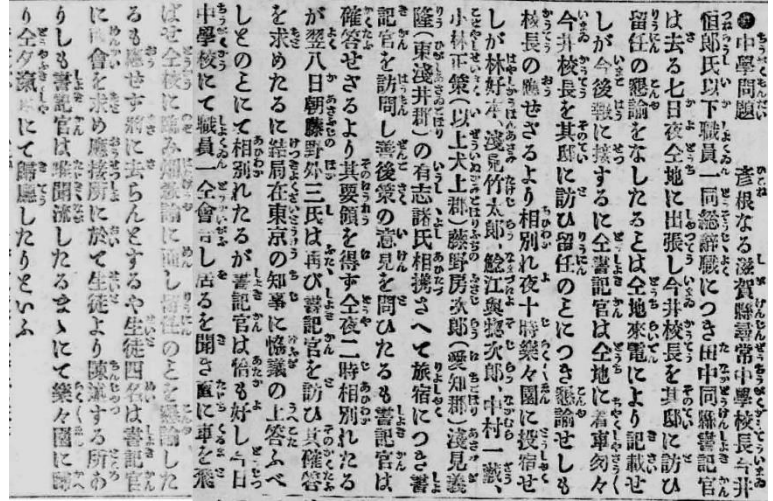 ●中學問題　彦根なる滋賀縣尋常中學校長今井
恒郎氏以下職員一同總辭職につき田中同縣書記官
は去る七日夜仝地に出張し今井校長を其邸に訪ひ
留任の懇諭をなしたるとは仝地來電により記載せ
しが今後報に接するに仝書記官は仝地に着車匆々
今井校長を其邸に訪ひ留任のとにつき懇諭せしも
校長の應せざるより相別れ夜十時樂々園に投宿せ
しが林好本、淺見竹太郎、鯰江與惣次郎、中村一藏、
小林正策（以上犬上郡）藤野房次郎（愛知郡）淺見義
隆（東淺井郡）の有志諸氏相携さへて旅宿につき書
記官を訪問し善後策の意見を問ひたるも書記官は
確答せざるより其要領を得ず仝夜二時相別れたる
が翌八日朝藤野外三氏は再び書記官を訪ひ其確答
を求めたるに結局在東京の知事に協議の上答ふべ
しとのとにて相別れたるが書記官は恰も好し今日
中學校にて職員一仝會合し居るを聞き直に車を飛
ばせ仝校に臨み懇諭に面し留任のとを懇諭した
るも應せず將に去らんとするや生徒四名は書記官
に面會を求め應接所に於て生徒より陳述する所あ
りしも書記官は唯聞流したるまゝにて樂々園に歸
り仝夕滊車にて歸廳したりといふ